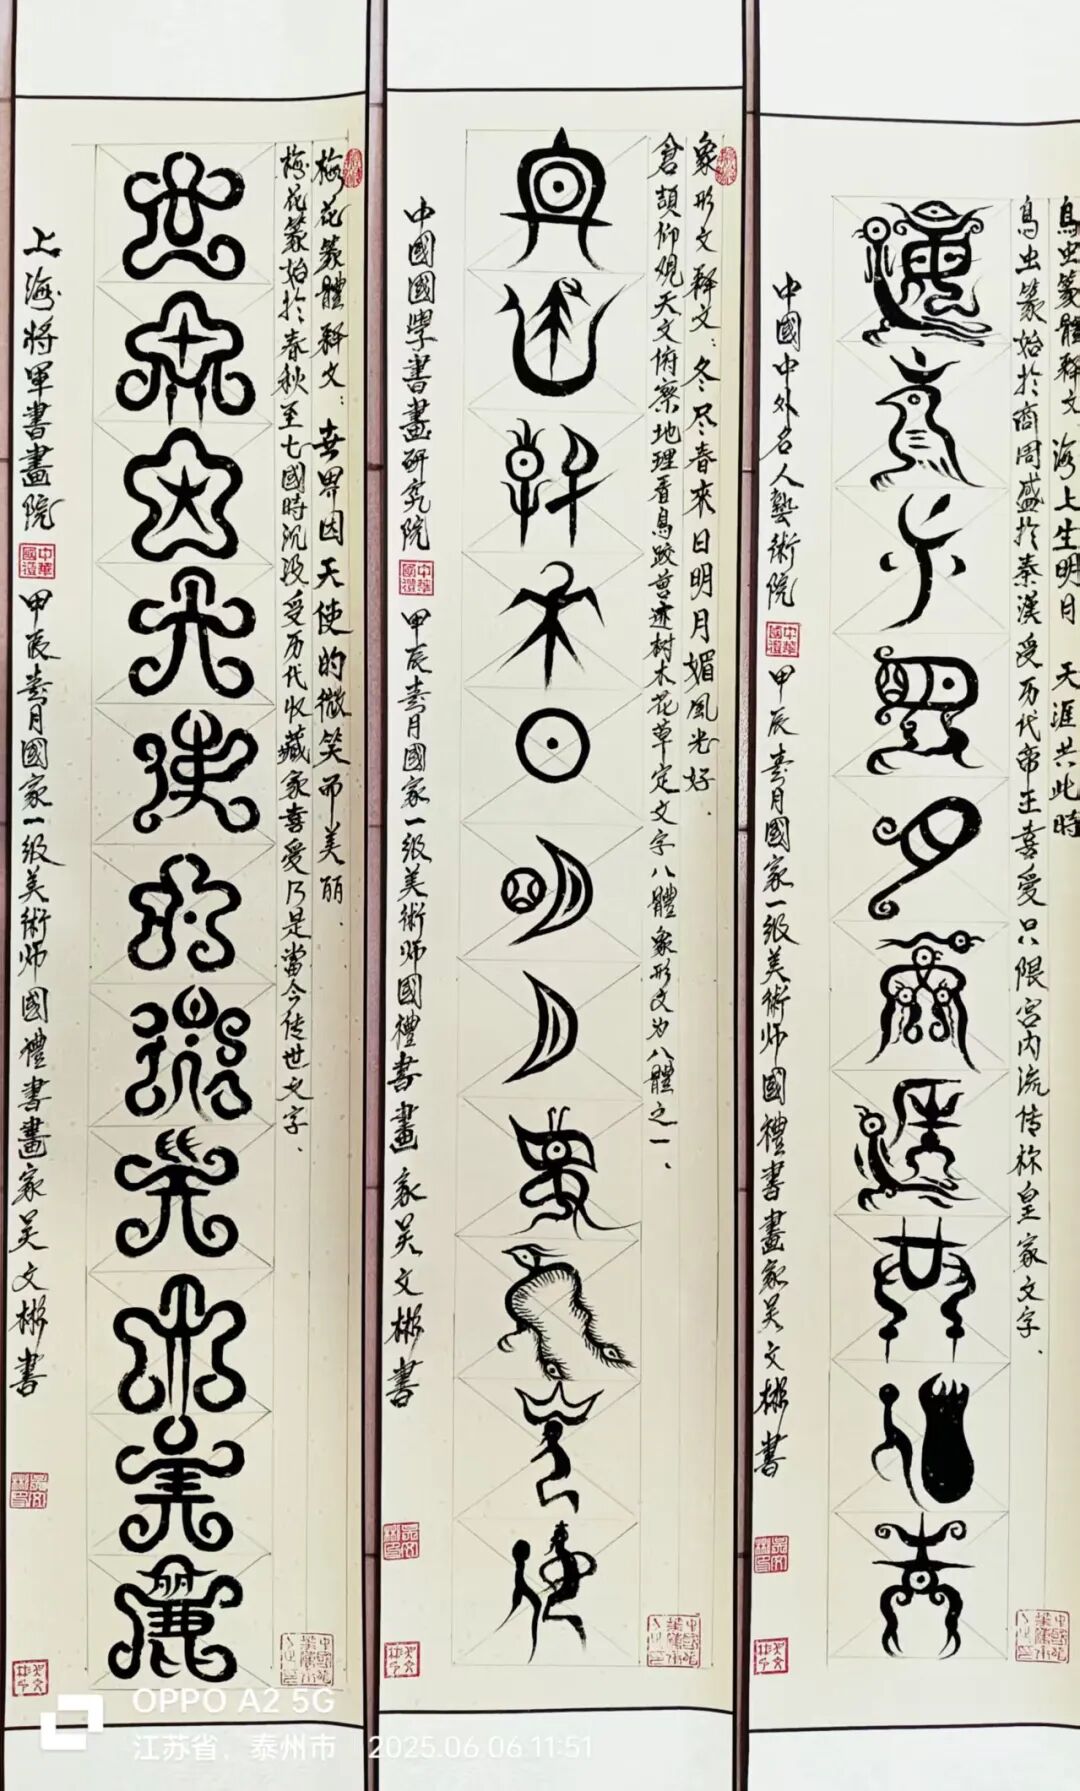 鸟虫篆體释文 海上生明月 天涯共此時
鸟虫篆始於商周盛於秦漢受历代帝王喜爱只限宫内流传称皇家文字.
海上生明月天涯共此時
中國中外名人藝術院 甲辰月國家一级美術师國禮書畫家吴文彬書
象形文释文:冬尽春來日明月媚風光好.
倉頡仰观天文俯察地理看鳥兽迹树木花草定文字八體象形文为八體之一、
冬尽春來日明月媚風光好
中國國學書畫研究院 甲辰月國家一级美術师國禮書畫家吴文彬書
梅花篆體释文:世界因天使的微笑而美丽.
梅花篆始於春秋至七國時沉没受历代收藏家喜爱乃是當今传世文字.
世界因天使的微笑而美麗
上海将軍書畫院 甲辰月國家一级美術师國禮書畫家吴文彬書
OPPO A2 5G
江苏省，泰州市 2025.06.06 11:51